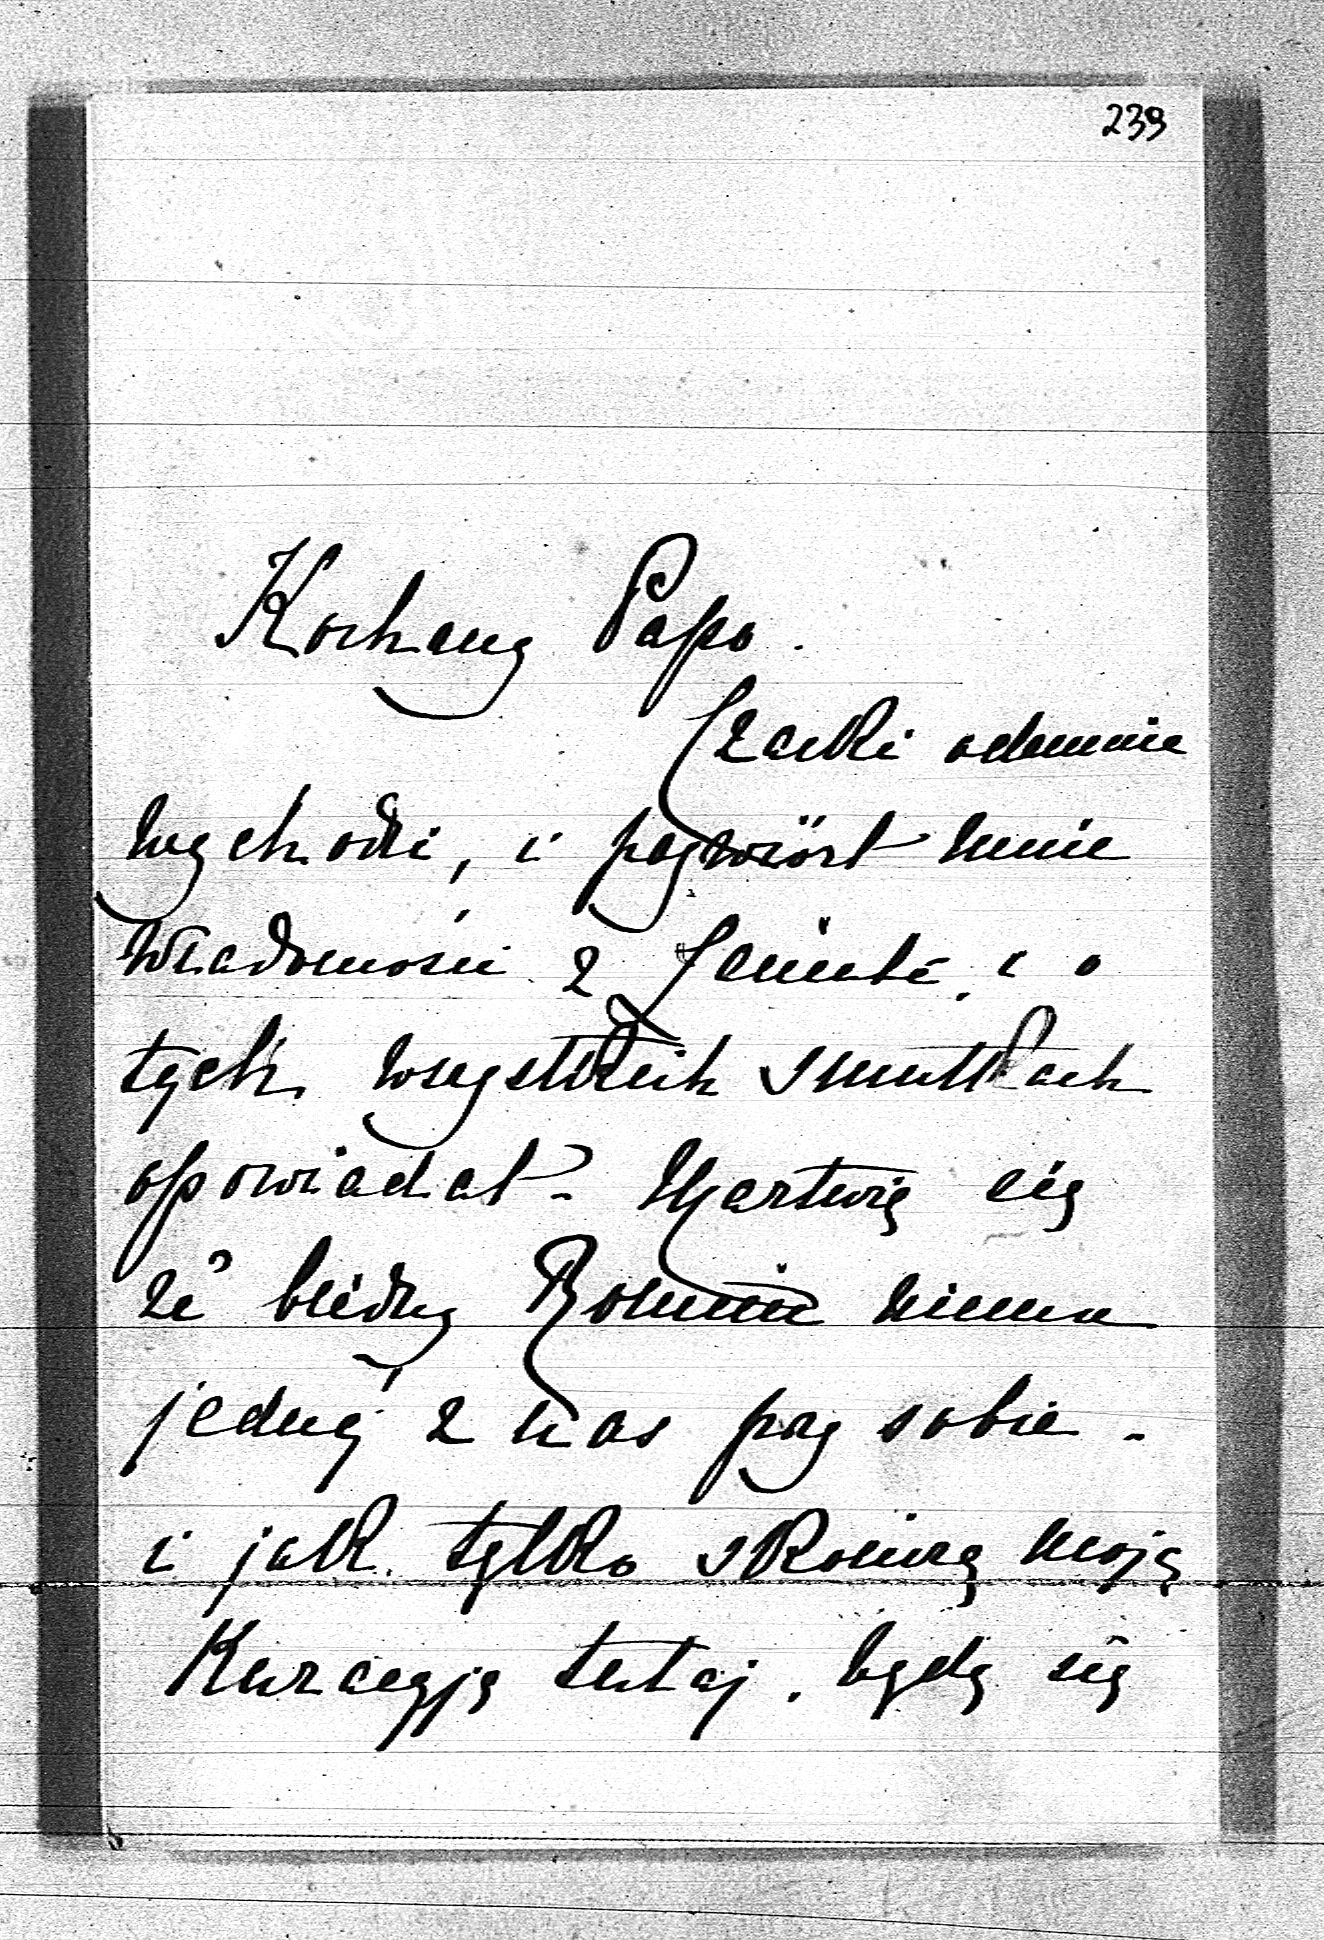 239
Kochany Papo.
Czacki odemnie
wychodzi, i przywiózł mnie
wiadomości z Łańcuta i o
tych wszystkich smutkach
opowiadał. Martwię się
że biedny Romcio niema
jednéj z nas przy sobie.
i jak tylko skończę moją
Kuracyję tutaj. będę się